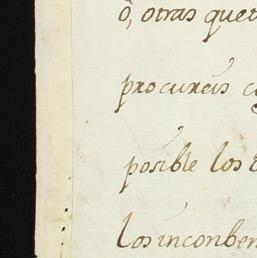 ô, otras que
procureis
posible los
los inconben